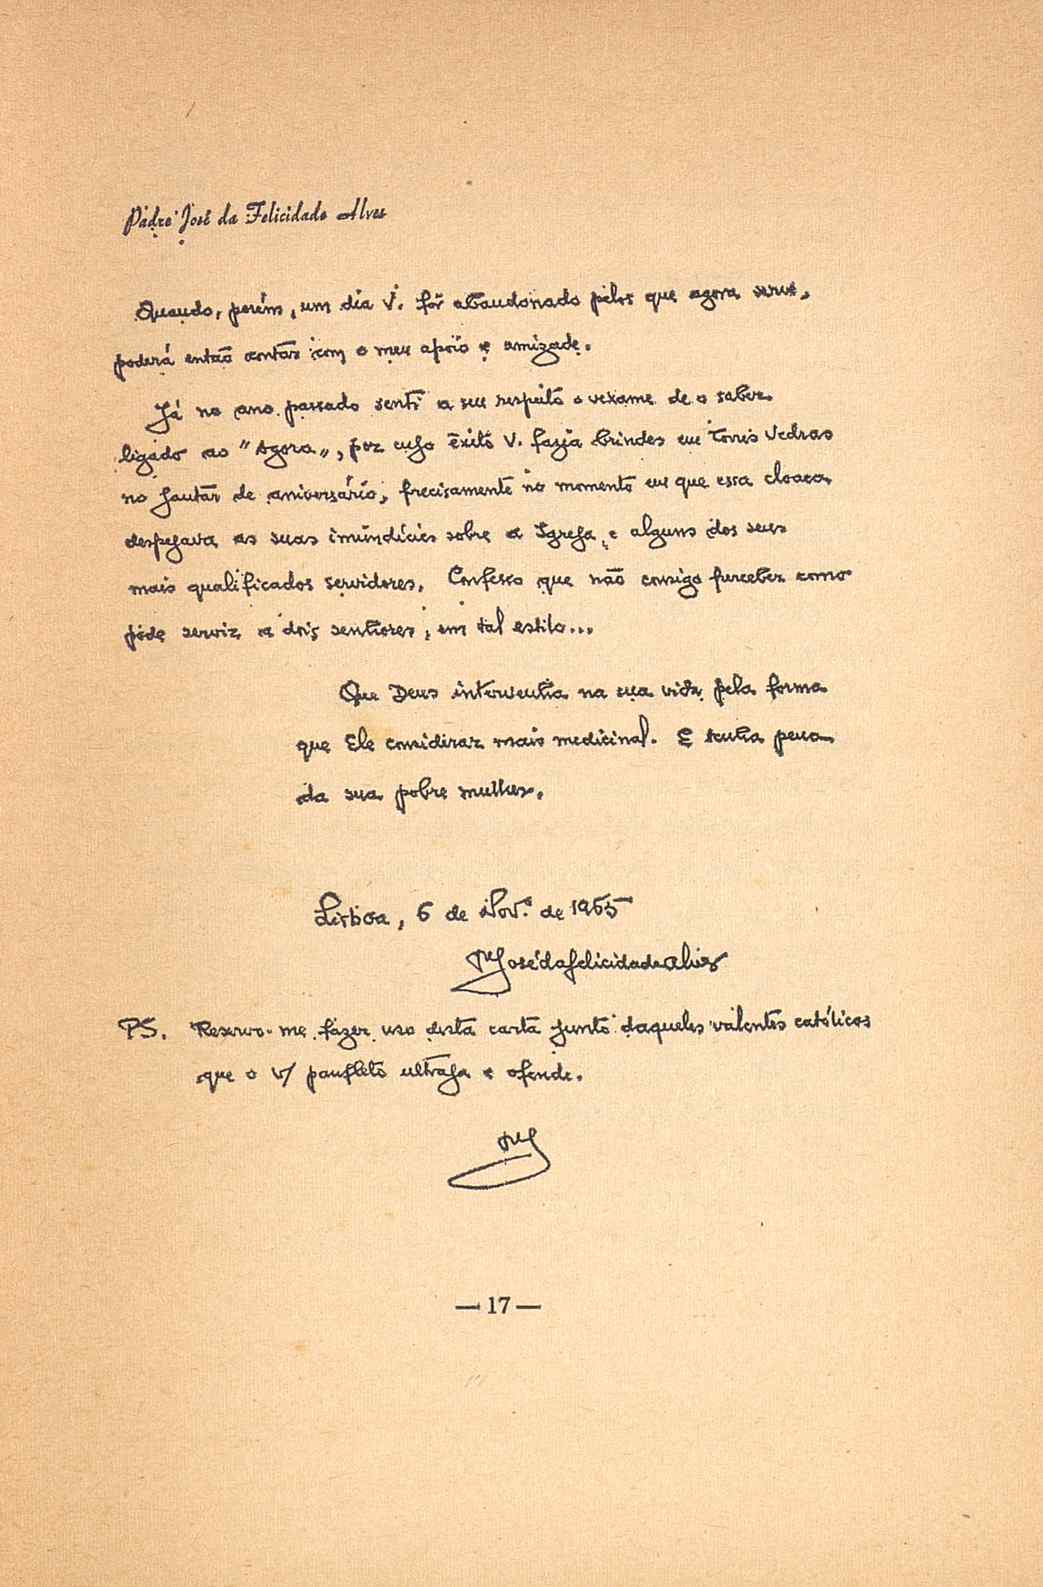 Padre José da Felicidade Alves
Quando, porém, um dia V. fôr abandonado pelos que agora serve,
poderá então contar com o meu apoio e amizade.
Já no ano passado senti a seu respeito o vexame de o saber
ligado ao "Agora", por cujo êxito V. fazia brindes em Torres Vedras
no jantar de aniversário, precisamente no momento em que essa cloaca
despejava as suas imundícies sobre a Igreja e alguns dos seus
mais qualificados servidores. Confesso que não consigo perceber como
pode servir a dois senhores, em tal estilo...
Que Deus intervenha na sua vida pela forma
que Ele considerar mais medicinal. E tenha pena
da sua pobre mulher.
Lisboa, 6 de Nov.º de 1965
José da Felicidade Alves
PS. Reservo-me fazer uso desta carta junto daqueles valentes católicos
que o v/ panfleto ultraja e ofende.
— 17 —